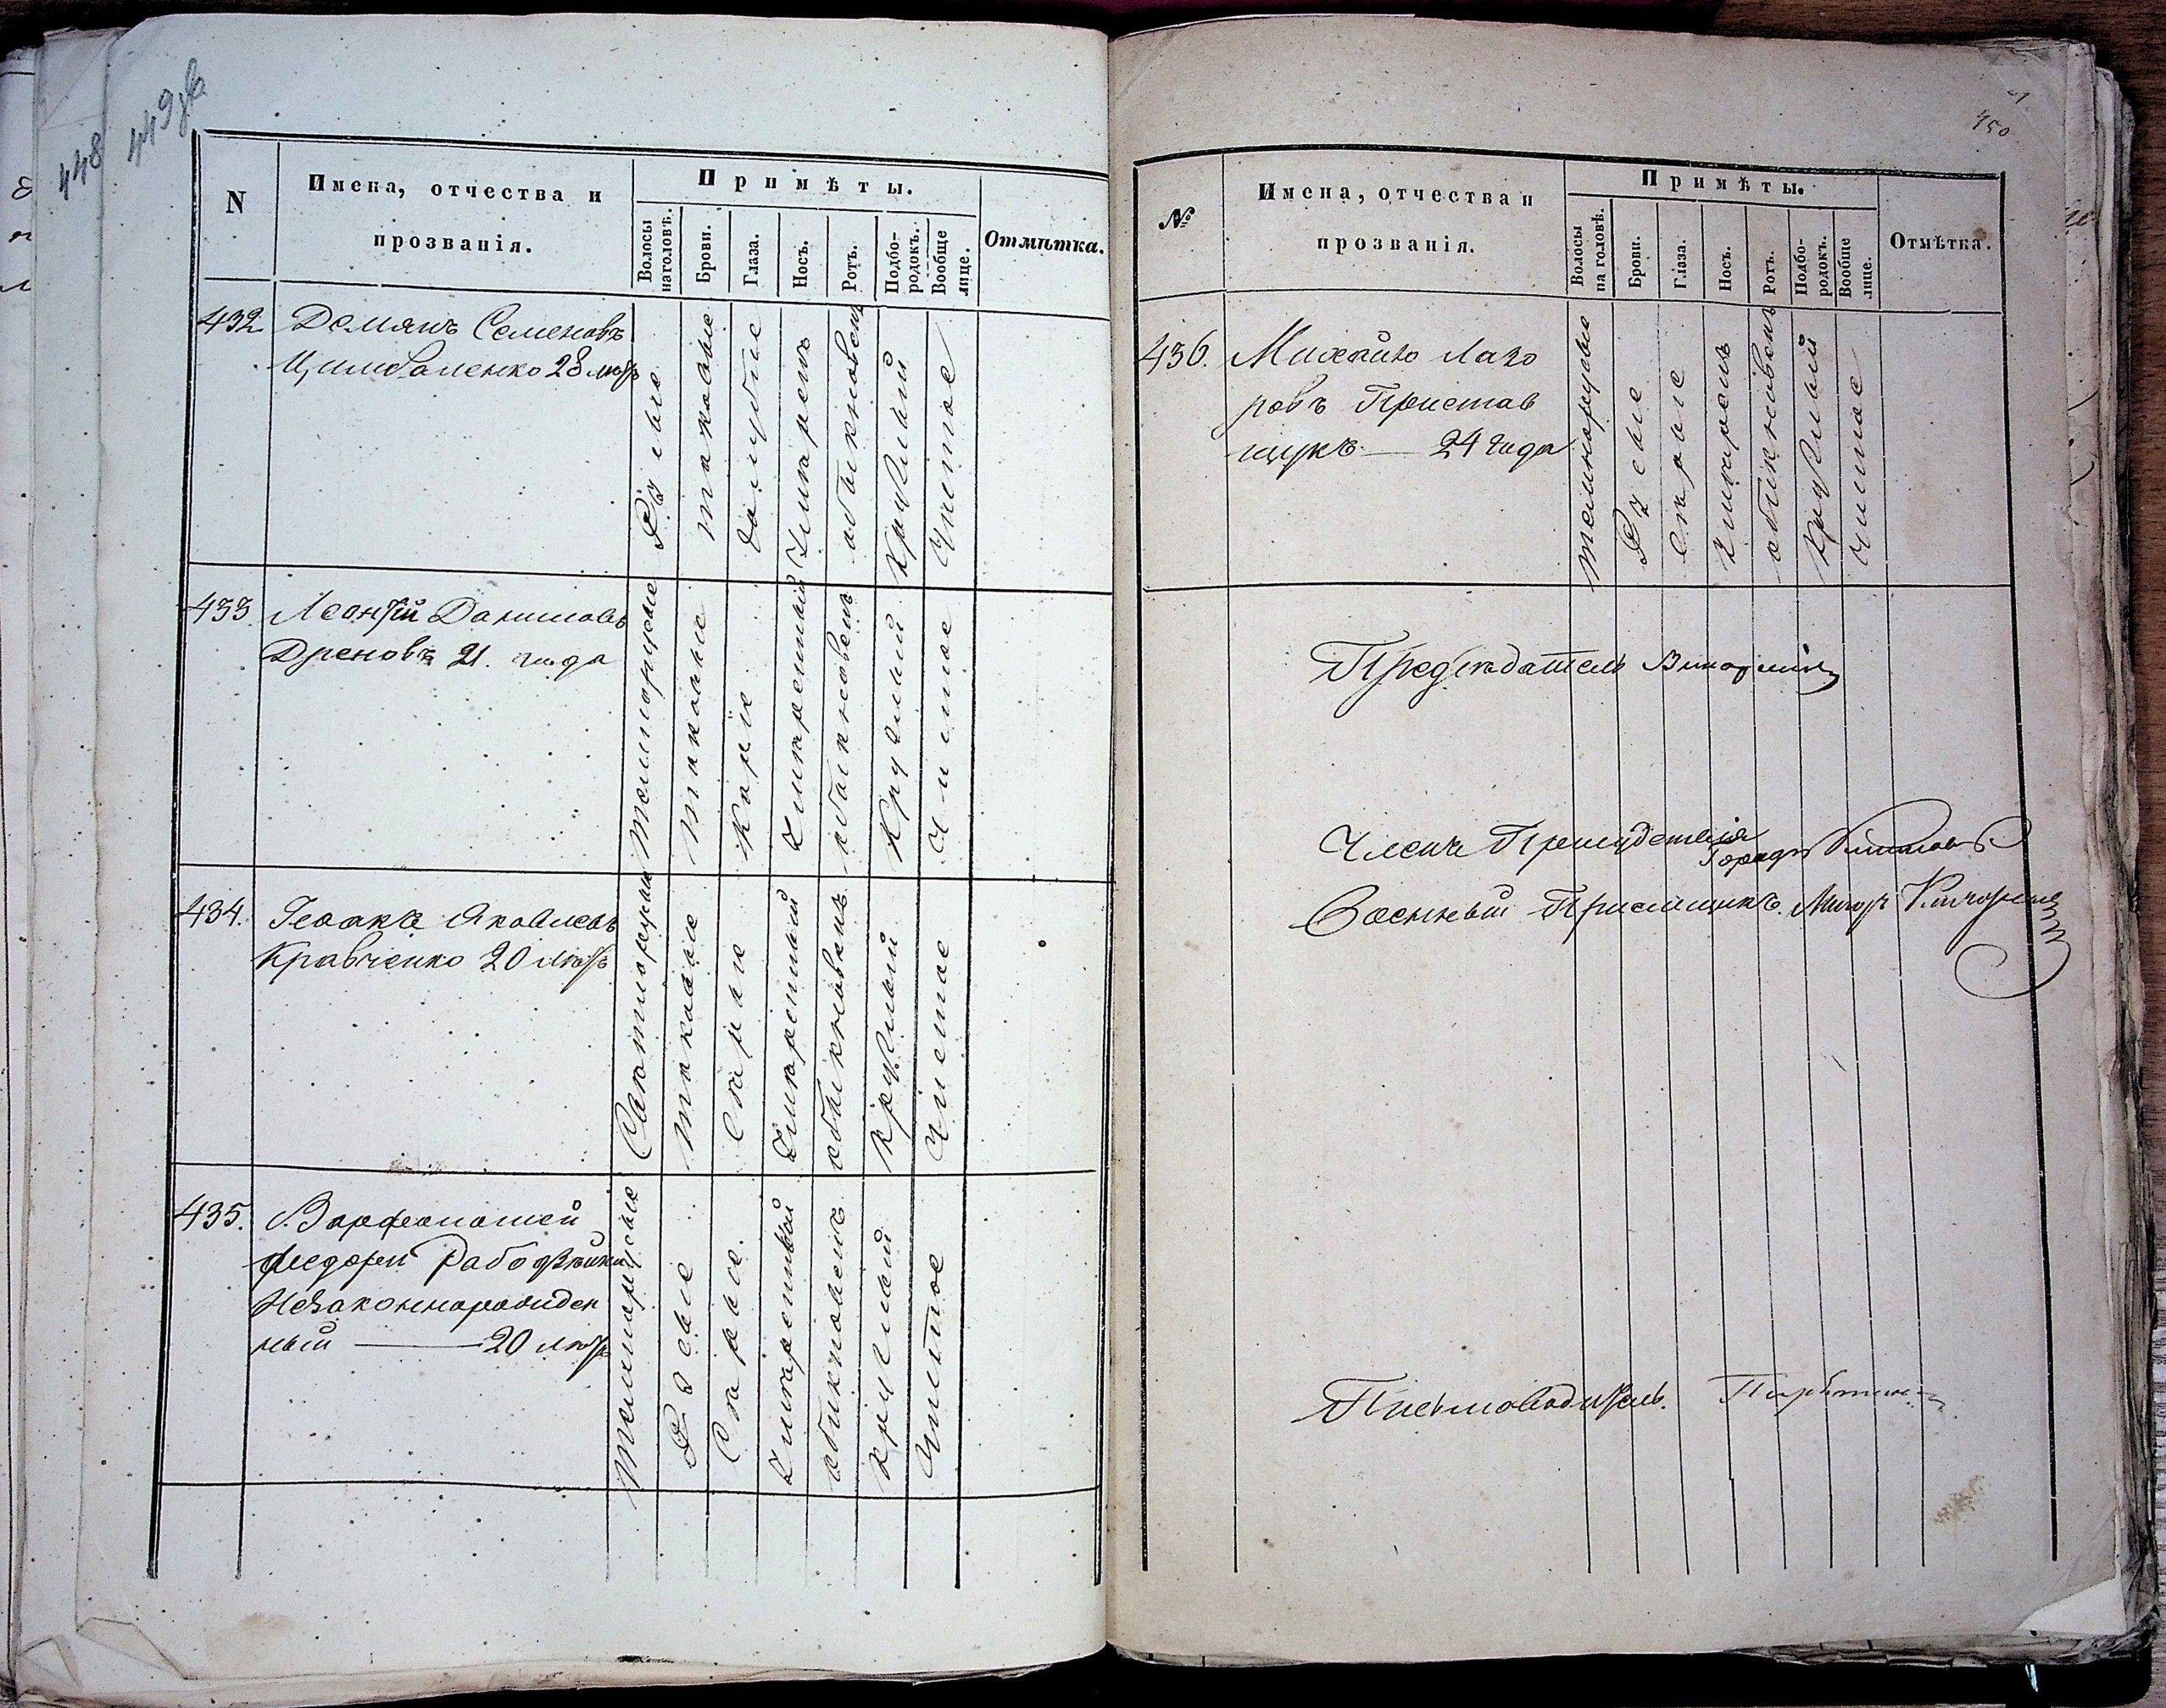 448
449об
N
Имена, отчества и
прозванія.
Примѣты.
Волосы
наголовѣ.
Брови.
Глаза.
Носъ.
Ротъ.
Подбо-
родокъ.
Вообще
лице.
Отмѣтка.
432
Демянъ Семеновъ
Цимбаленко 28 лѣтъ
Русые
таковые
голубые
умѣрен
обыкновен
круглый
Чистое
433
Леонтій Даниловъ
Дреновъ 21. года
темнорусые
таковые
Каріе
Умѣренный
обыкновенъ
Круглый
Чистое
434.
Яковлевъ
Кравченко 20 лѣтъ
Свѣтлорусые
таковые
Сѣрые
Умѣренный
обыкновенъ
Круглый
Чистое
435.
Варфоломей
Федоры
Незаконнорожден
ный — 20 лѣтъ
Темнорусые
Русые
Сѣрые.
Умѣренный
обыкновенъ
Круглый
Чистое
450
№
Имена, отчества и
прозванія.
Примѣты.
Волосы
на головѣ.
Брови.
Глаза.
Носъ.
Ротъ.
Подбо-
родокъ.
Вообще
лице.
Отмѣтка.
436.
Михайло Лаза
ровъ Пристав
щукъ — 24 года
темнорусые
Русые
Сѣрые
Умѣренъ
обыкновенъ
Круглый
Чистое
Предсѣдатель
Члены Присудствія
Военный Пріемщикъ Маіоръ
Письмоводитель.